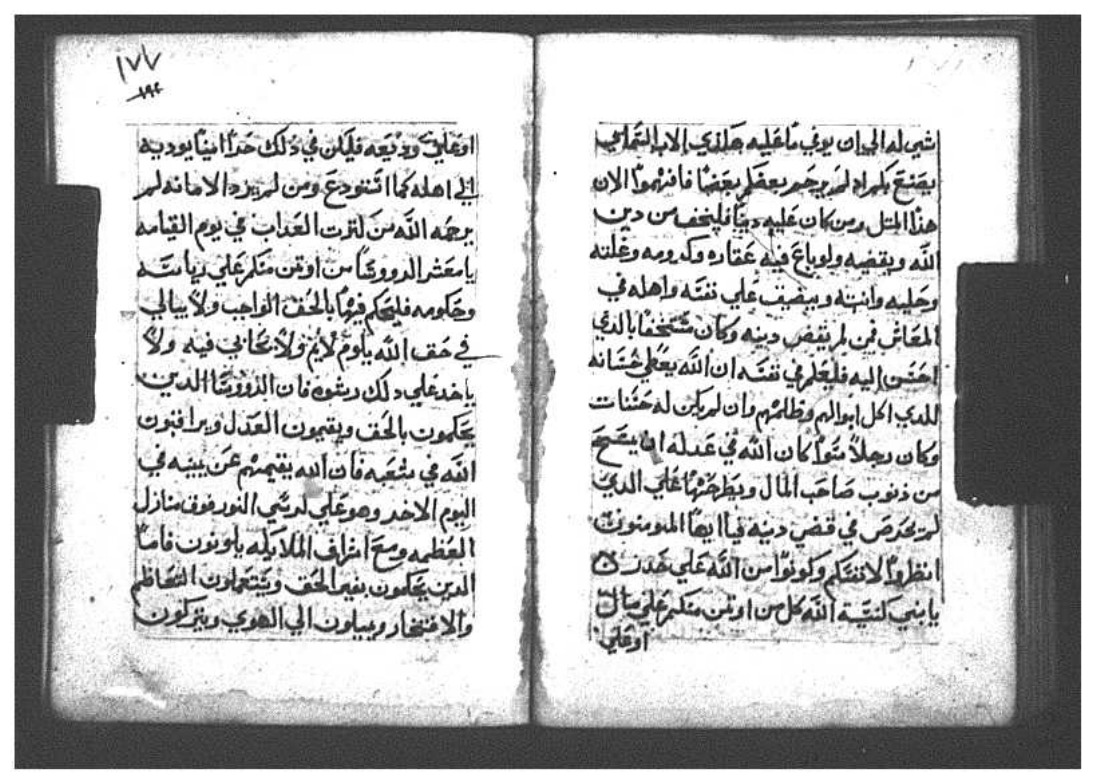 شي له الي ان يوفي ما عليه هكذي الاب السماءي
يصنع بكم اذ لم يرحم بعضكم بعضا فافهموا الان
هذا المتل ومن كان عليه دينا فليخف من دين
الله ويقضيه ولو باع فيه عقاره وكرومه وغلته
وحليه وانيته ويضيف علي نفسه واهله في
المعاش فمن لم يقض دينه وكان مستخفا بالدي
احسن اليه فليعلم في نفسه ان الله يعطي حسناته
للدي اكل اموالهم وظلمهم وان لم يكن له حسنات
وكان رجلا سوا كان الله في عدله ان يضع
من ذنوب صاحب المال ويطرحها علي الدي
لم يحرص في قضي دينه فيا ايها المومنون
انظروا لانفسكم وكونوا من الله علي حدر
يا بني كنيسة الله كل من اوتمن منكم علي مال
اوعلي
١٧٧
١٩٢
اوعلي وديعه فليكن في ذلك حدا امينا يوديه
الي اهله كما استودع ومن لم يرد الامانه لم
يرحمه الله من لترت العداب في يوم القيامه
يا معشر الرووسا من اوتمن منكم علي رياسه
وحكومه فليحكم فيها بالحق الواجب ولا يبالي
في حق الله بلوم لايم ولا يحابي فيه ولا
ياخد علي دلك رشوه فان الرووسا الدين
يحكمون بالحق ويقيمون العدل ويراقبون
الله في شعبه فان الله يقيمهم عن يمينه في
اليوم الاخر وهو علي كرسي النور فوق منازل
العظمه ومع اشراف الملايكه يكونون فاما
الدين يحكمون بغير الحق ويستعملون التعاظم
والافتخار ويميلون الي الهوي ويتركون